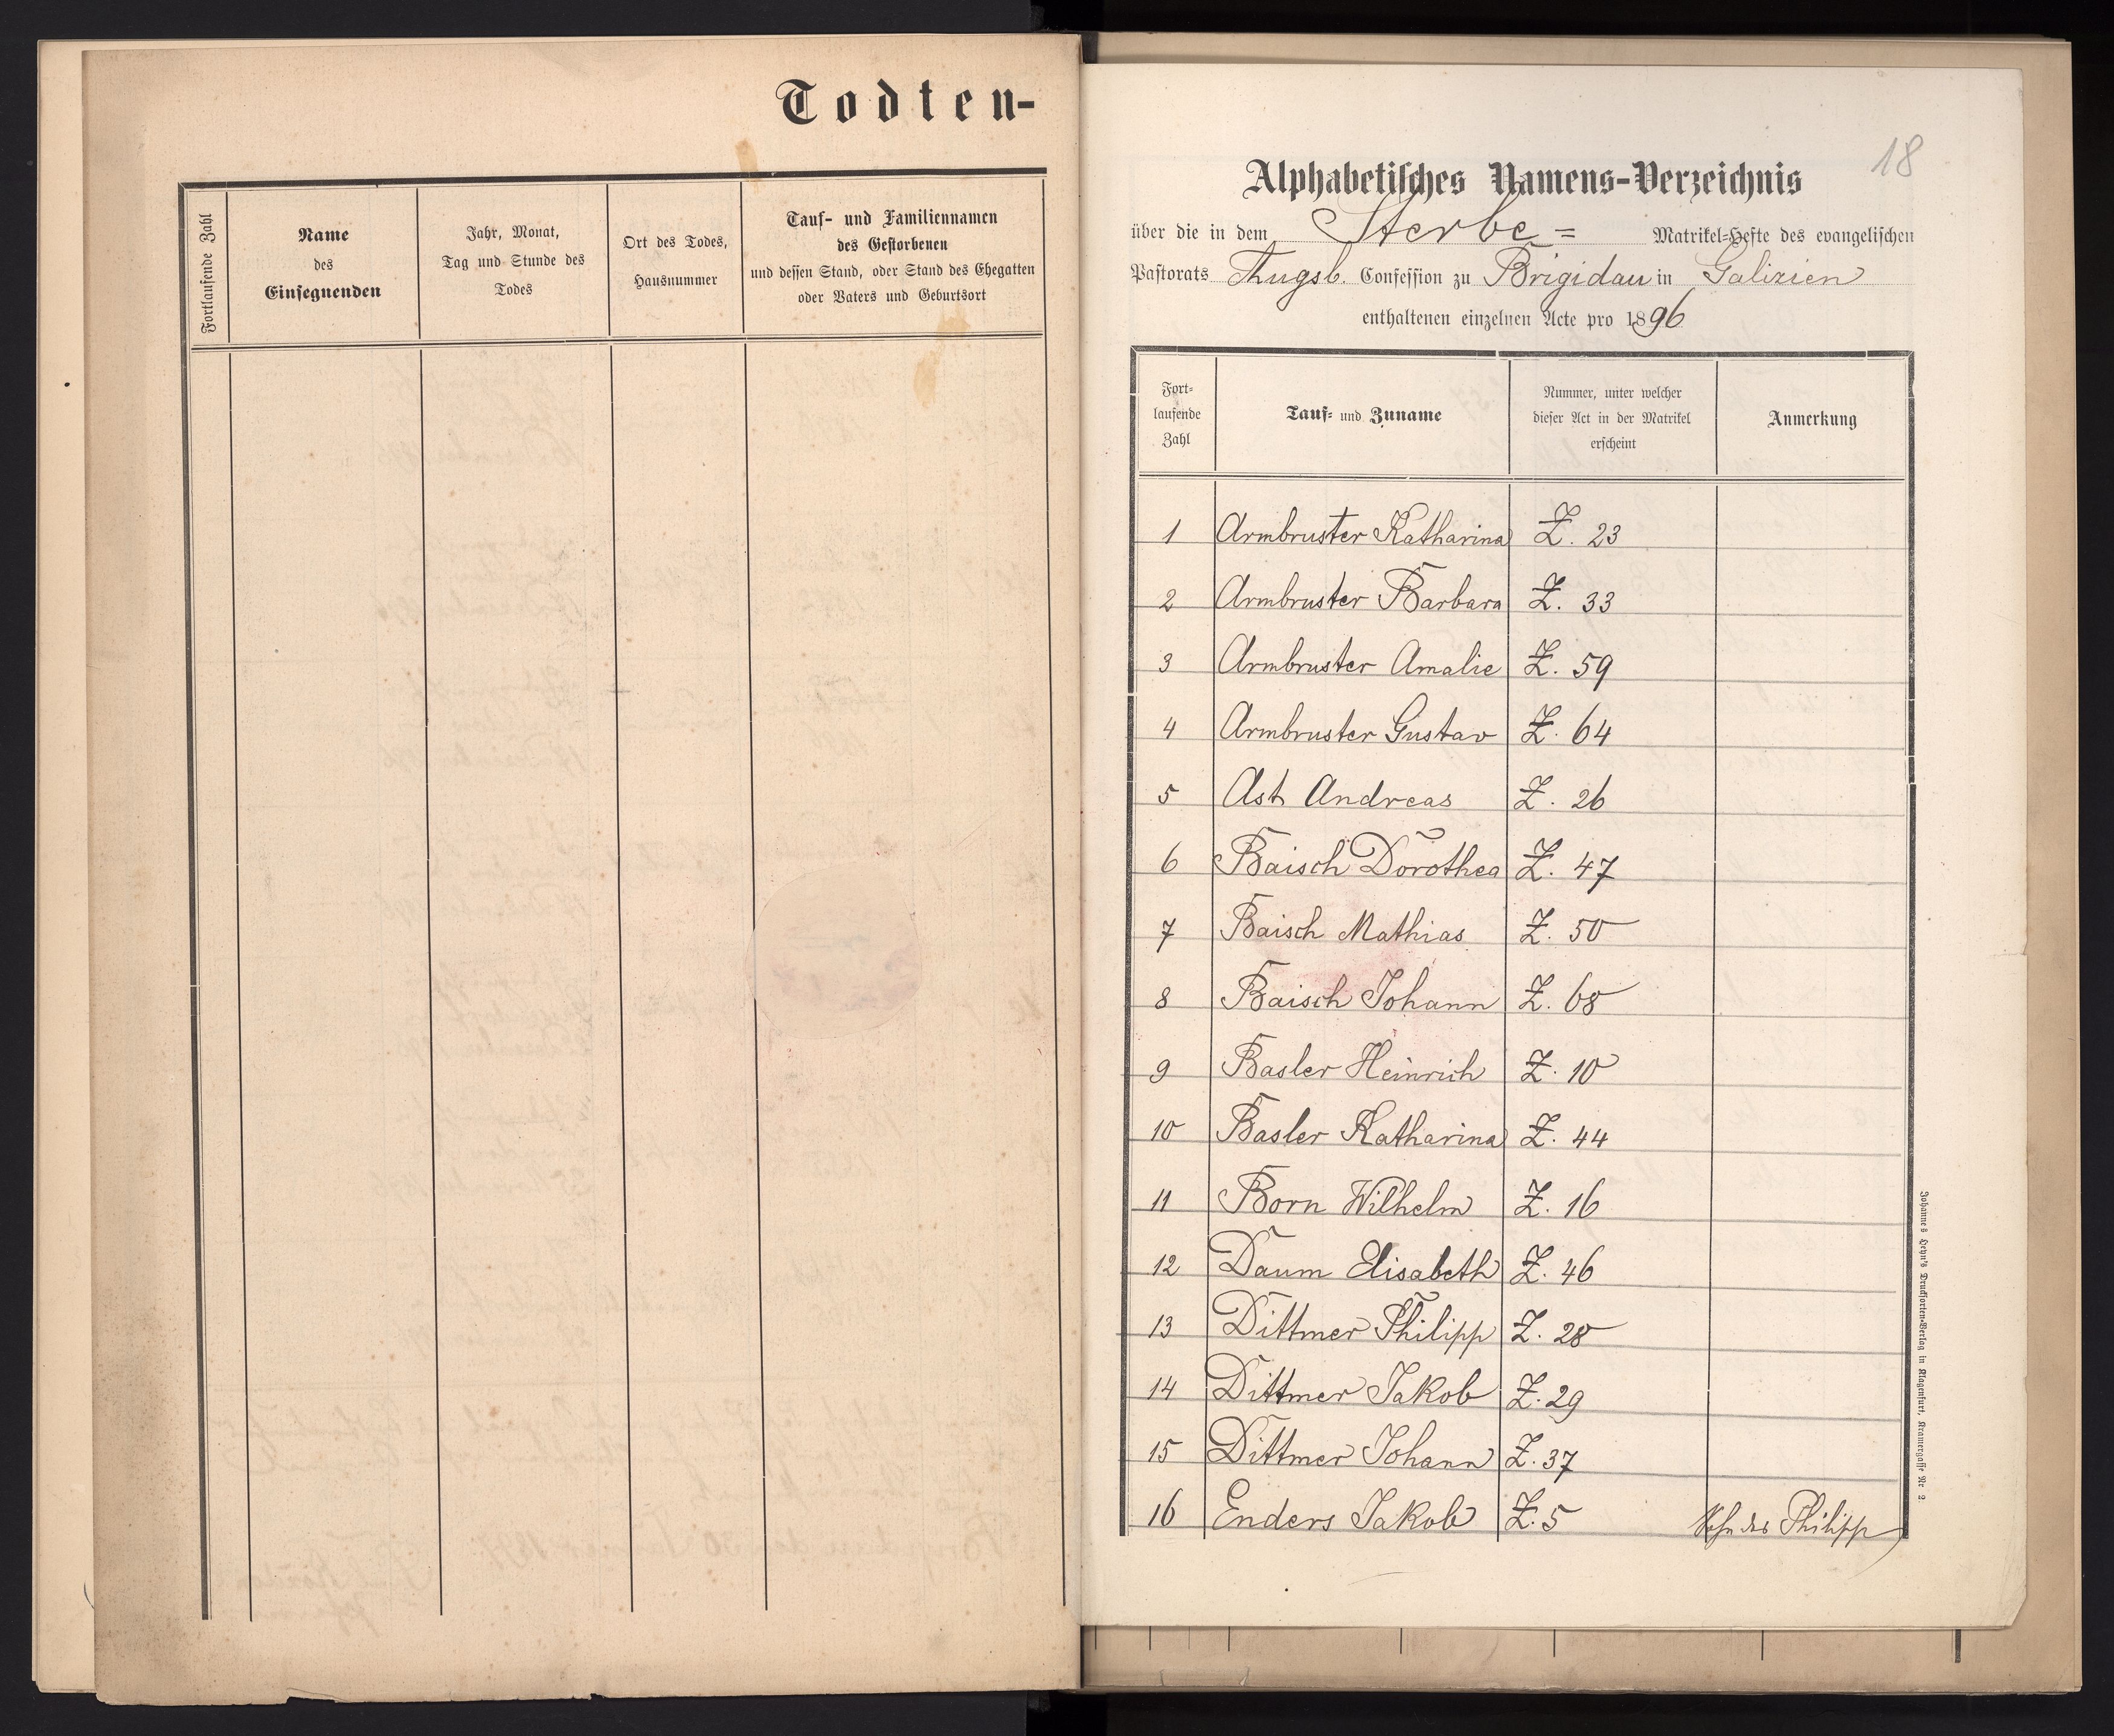 Todten-
Fortlaufende Zahl
Name
des
Einsegnenden
Jahr, Monat,
Tag und Stunde des
Todes
Ort des Todes,
Hausnummer
Tauf- und Familiennamen
des Gestorbenen
und dessen Stand, oder Stand des Ehegatten
oder Vaters und Geburtsort
18
Alphabetisches Namens-Verzeichnis
über die in dem Sterbe= Matrikel-Hefte des evangelischen
Pastorats Augsb. Confession zu Brigidau in Galizien
enthaltenen einzelnen Acte pro 1896
Fort-
laufende
Zahl
Tauf- und Zuname
Nummer, unter welcher
dieser Act in der Matrikel
erscheint
Anmerkung
1 Armbruster Katharina Z. 23
2 Armbruster Barbara Z. 33
3 Armbruster Amalie Z. 59
4 Armbruster Gustav Z. 64
5 Ast Andreas Z. 26
6 Baisch Dorothea Z. 47
7 Baisch Mathias Z. 50
8 Baisch Johann Z. 68
9 Basler Heinrich Z. 10
10 Basler Katharina Z. 44
11 Born Wilhelm Z. 16
12 Daum Elisabeth Z. 46
13 Dittmer Philipp Z. 28
14 Dittmer Jakob Z. 29
15 Dittmer Johann Z. 37
16 Enders Jakob Z. 5 Sohn des Philipp
Johannes Heyn's Drucksorten-Verlag in Klagenfurt, Kramergasse Nr 2